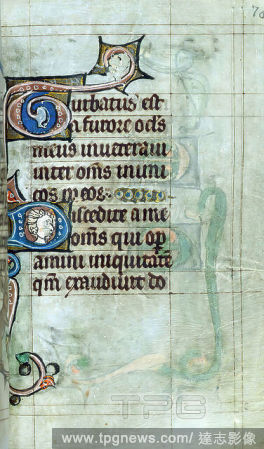 70
Turbatus est
a furore ocls
meus inveteravi
inter oms inimi
cos meos
Discedite a me
oms qui op
amini iniquitate
qm exaudivit do
TPG
www.tpgnews.com/ 達志影像